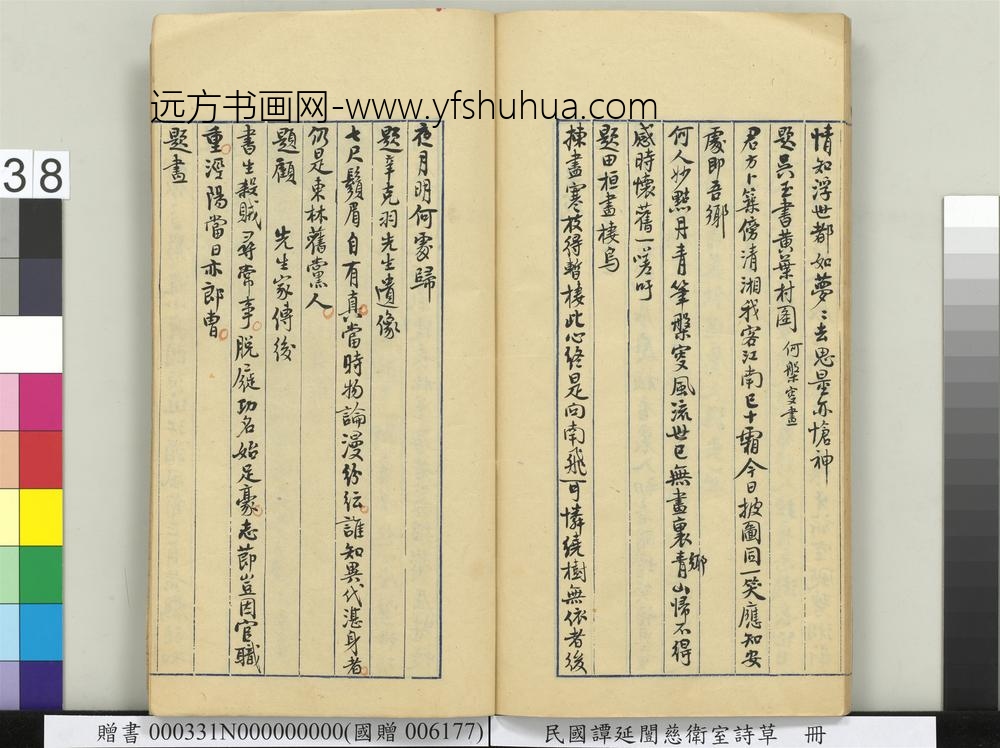 远方书画网-www.yfshuhua.com
38
情知浮世都如夢ミ去思量亦愴神
題吳玉書黃葉村圖 何槃叟畫
君方卜築傍清湘我客江南已十霜今日披圖同一笑應知安
處即吾鄉
何人妙點丹青筆槃叟風流世已無畫裏青山歸不得
鄉
感時懷舊一嗟吁
題田桓畫棲烏
揀盡寒枝得暫棲此心終是向南飛可憐繞樹無依者後
夜月明何處歸
題辛克羽先生遺像
七尺鬚眉自有真當時物論漫紛紜誰知異代湛身者
仍是東林舊黨人
題顧 先生家傳後
書生殺賊尋常事脫屣功名始足豪志節豈因官職
重涇陽當日亦郎曹
題畫
贈書 000331N000000000(國贈 006177)
民國譚延闓慈衛室詩草 冊